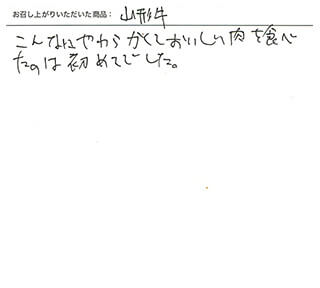 お召し上がりいただいた商品： 山形牛
こんなにやわらかくておいしい肉を食べ
たのは初めてでした。